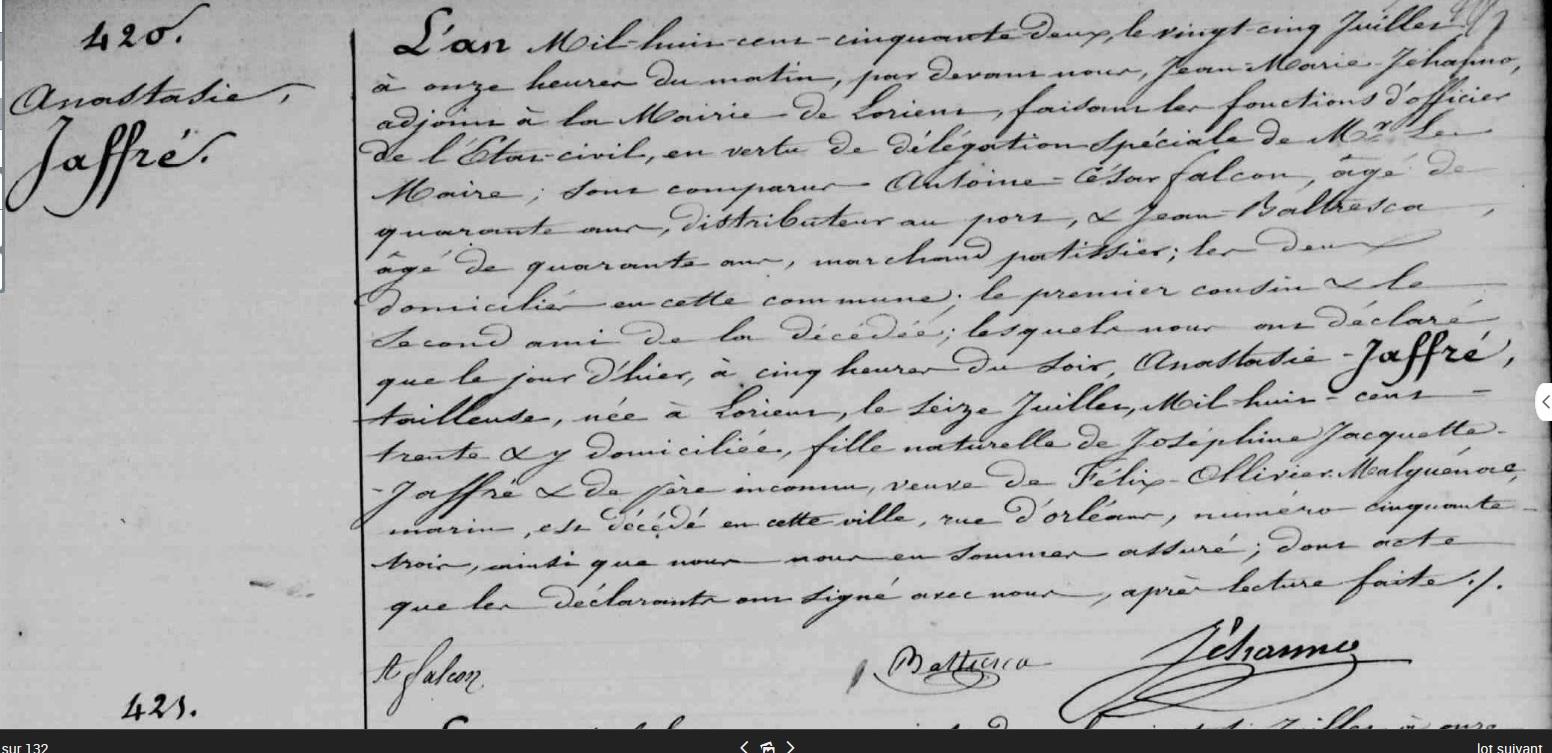 420.
Anastasie,
Jaffré.
L'an Mil-huit-cent-cinquante-deux, le vingt-cinq Juillet
à onze heures du matin, par devant nous, Jean-Marie Jéhanno,
adjoint à la Mairie de Lorient, faisant les fonctions d'officier
de l'Etat-civil, en vertu de délégation spéciale de Mr. Le
Maire; sont comparus Antoine-César falcon, âgé de
quarante ans, distributeur au port, & Jean Baltresca,
âgé de quarante ans, marchand patissier; les deux
domiciliés en cette commune; le premier cousin & le
second ami de la décédée; lesquels nous ont déclaré
que le jour d'hier, à cinq heures du soir, Anastasie-Jaffré,
tailleuse, née à Lorient, le seize Juillet, Mil-huit-cent-
trente & y domiciliée, fille naturelle de Joséphine Jacquette-
-Jaffré & de père inconnu, veuve de Félix-Ollivier Malguénac,
marin, est décédé en cette ville, rue d'orléans, numéro cinquante-
trois, ainsi que nous nous en sommes assuré; dont acte
que les déclarants ont signé avec nous, après lecture faite ./.
A falcon
Baltresca
Jéhanno
421.
sur 132
lot suivant